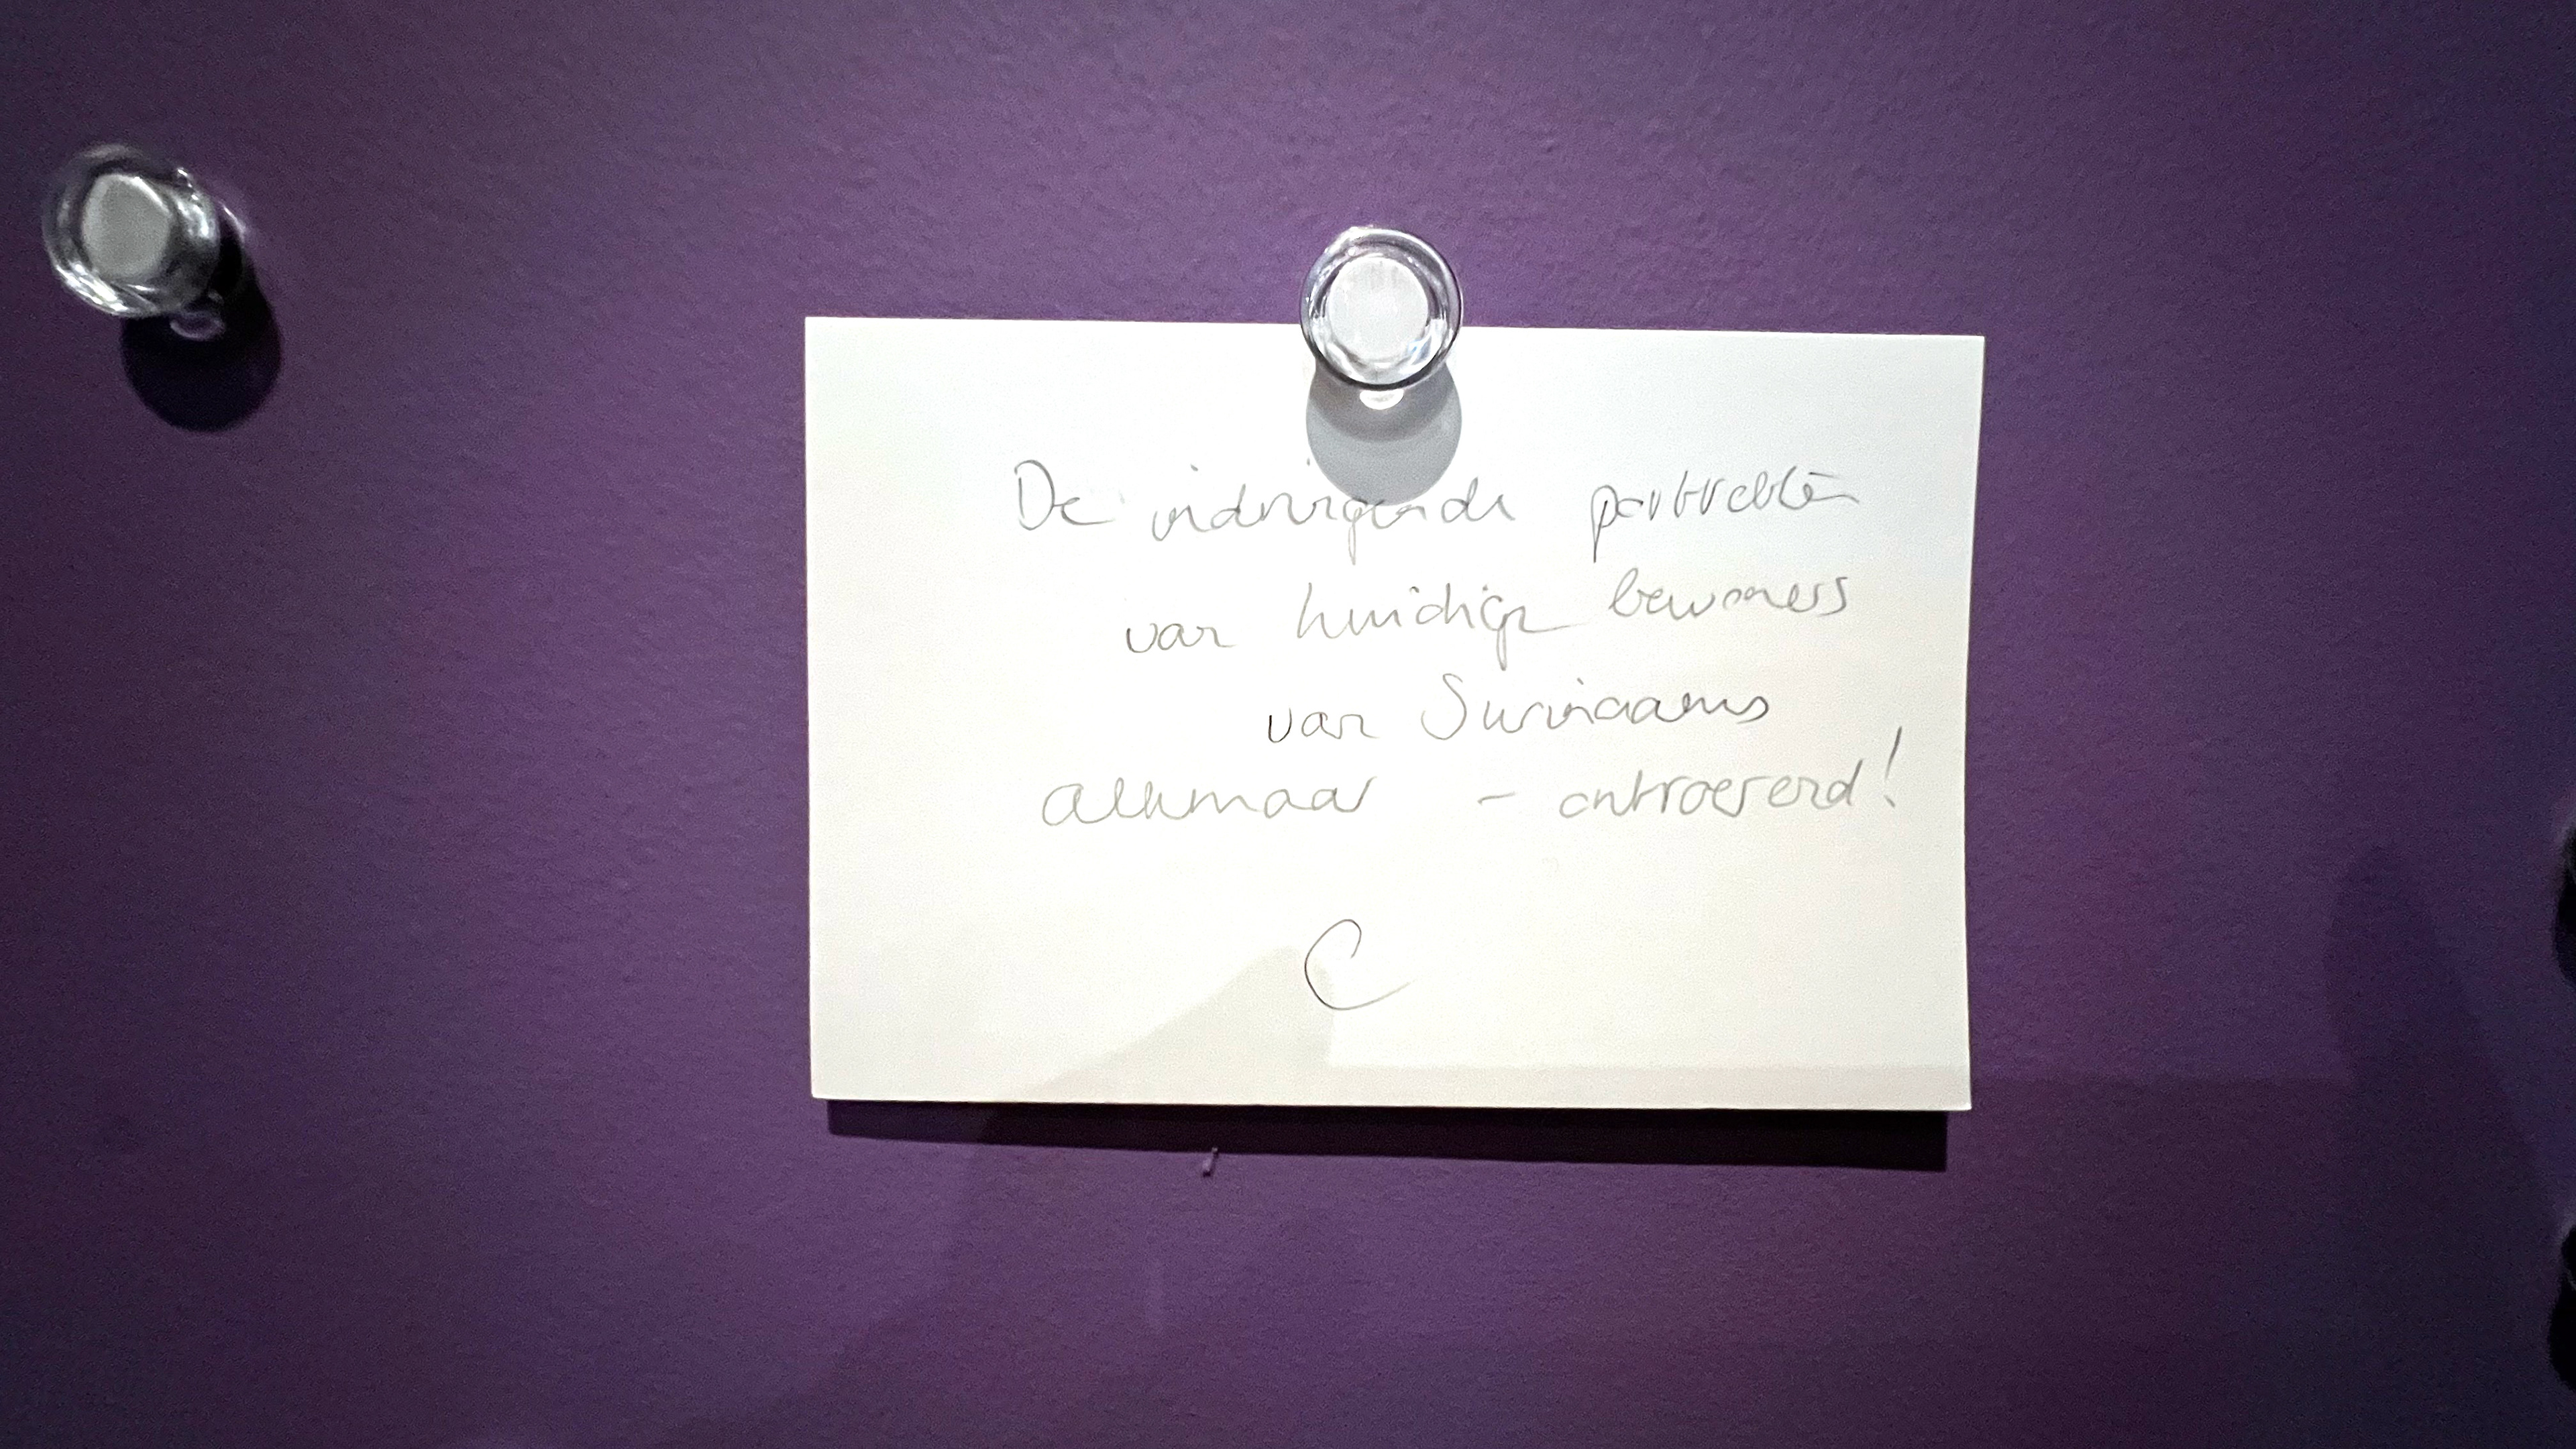 De indringende portretten
van huidige bewoners
van Surinaams
alkmaar - ontroerend!
C